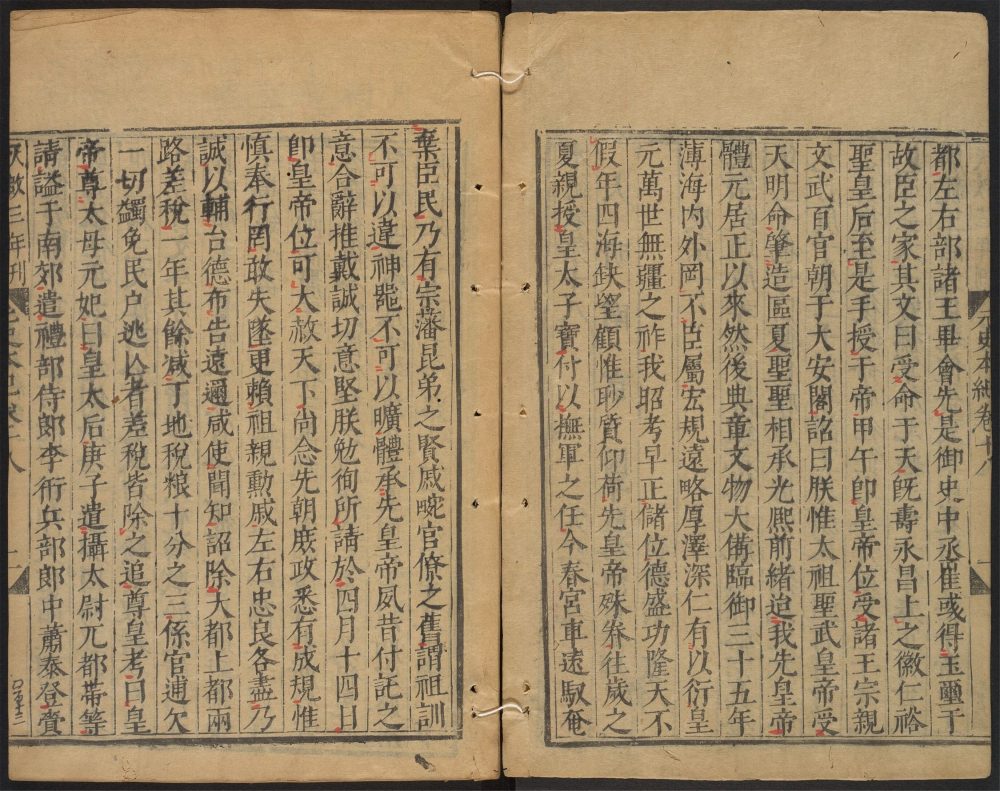 都左右部諸王畢會先是御史中丞崔彧得玉璽于
故臣之家其文曰受命于天旣壽永昌上之徽仁裕
聖皇后至是手授于帝甲午卽皇帝位受諸王宗親
文武百官朝于大安閣詔曰朕惟太祖聖武皇帝受
天明命肇造區夏聖聖相承光熙前緒迨我先皇帝
體元居正以來然後典章文物大備臨御三十五年
薄海內外罔不臣屬宏規遠略厚澤深仁有以衍皇
元萬世無疆之祚我昭考早正儲位德盛功隆天不
假年四海缺望顧惟眇質仰荷先皇帝殊眷往歲之
夏親授皇太子寶付以撫軍之任今春宮車遠馭奄
元史本紀卷十八
一
棄臣民乃有宗藩昆弟之賢戚畹官僚之舊謂祖訓
不可以違神噐不可以曠體承先皇帝夙昔付託之
意合辭推戴誠切意堅朕勉徇所請於四月十四日
卽皇帝位可大赦天下尙念先朝庶政悉有成規惟
愼奉行罔敢失墜更賴祖親勳戚左右忠良各盡乃
誠以輔台德布告遠邇咸使聞知詔除大都上都兩
路差稅一年其餘减丁地稅粮十分之三係官逋欠
一切蠲免民户逃亾者差稅皆除之追尊皇考曰皇
帝尊太母元妃曰皇太后庚子遣攝太尉兀都帶等
請謚于南郊遣禮部侍郎李衎兵部郎中蕭泰登賫
三年刊